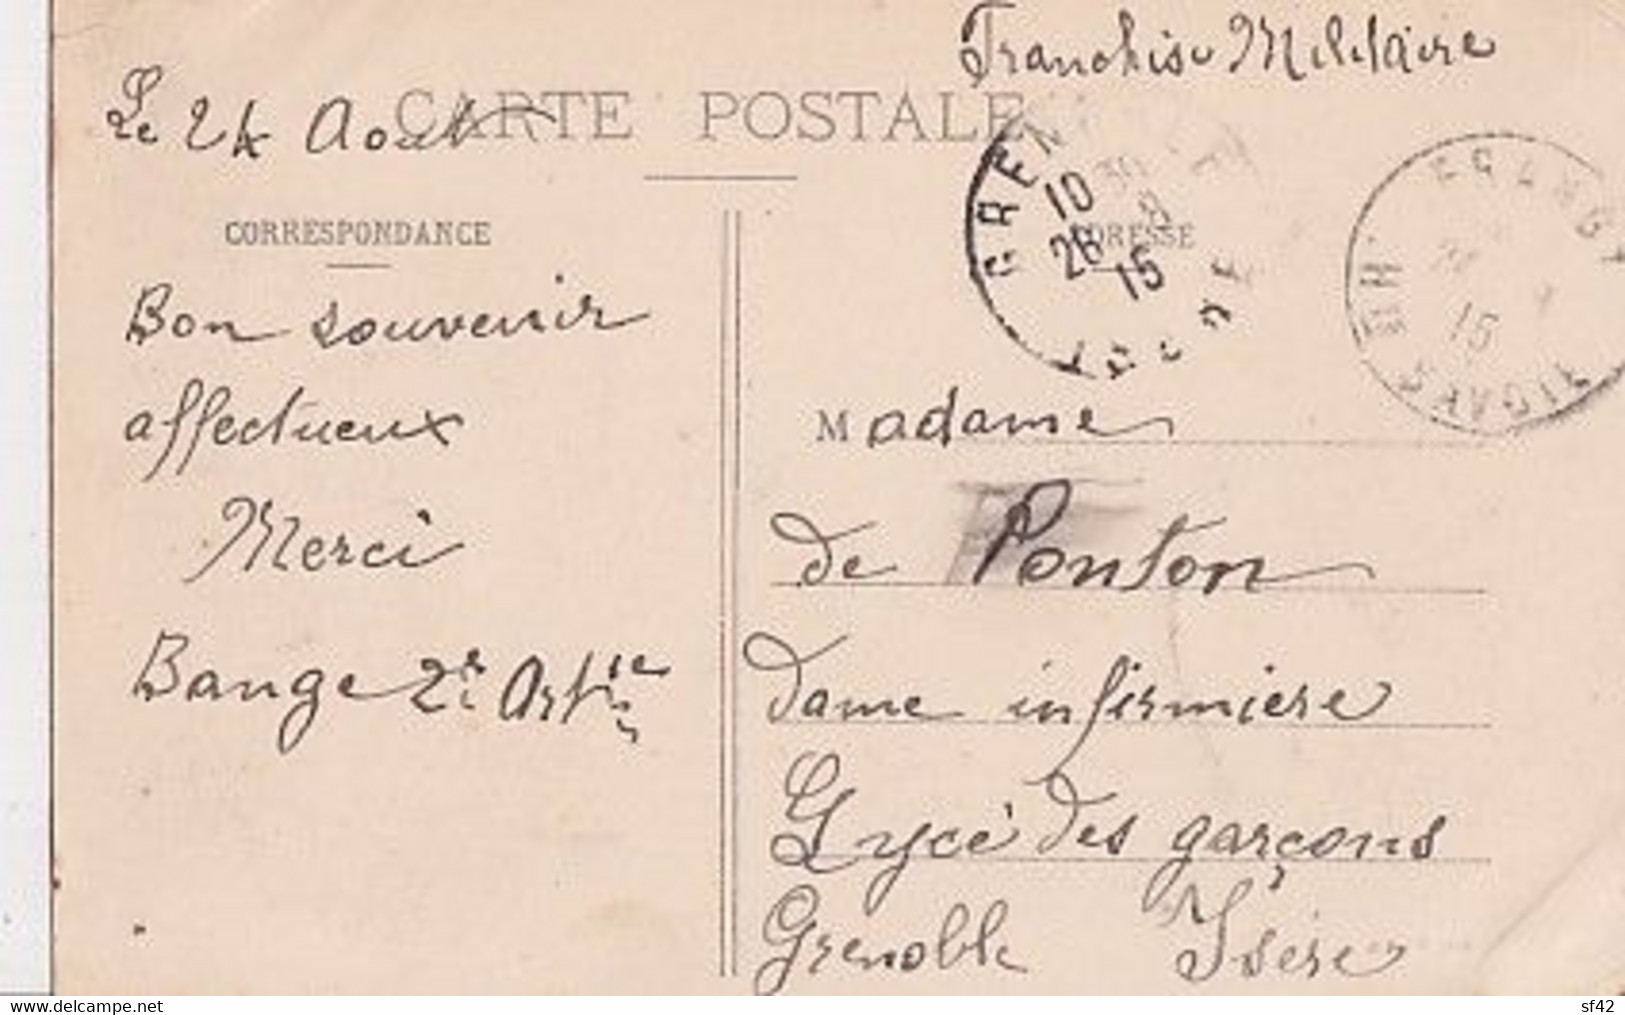 Franchise Militaire
Le 24 Aout
CARTE POSTALE
GREN
10
26 8
15
ISÈRE
15
CORRESPONDANCE
ADRESSE
Bon souvenir
affectueux
Merci
Bange 2e Artie
Madame
de Ponton
dame infirmiere
Lycé des garçons
Grenoble Isère
delcampe.net
sf42